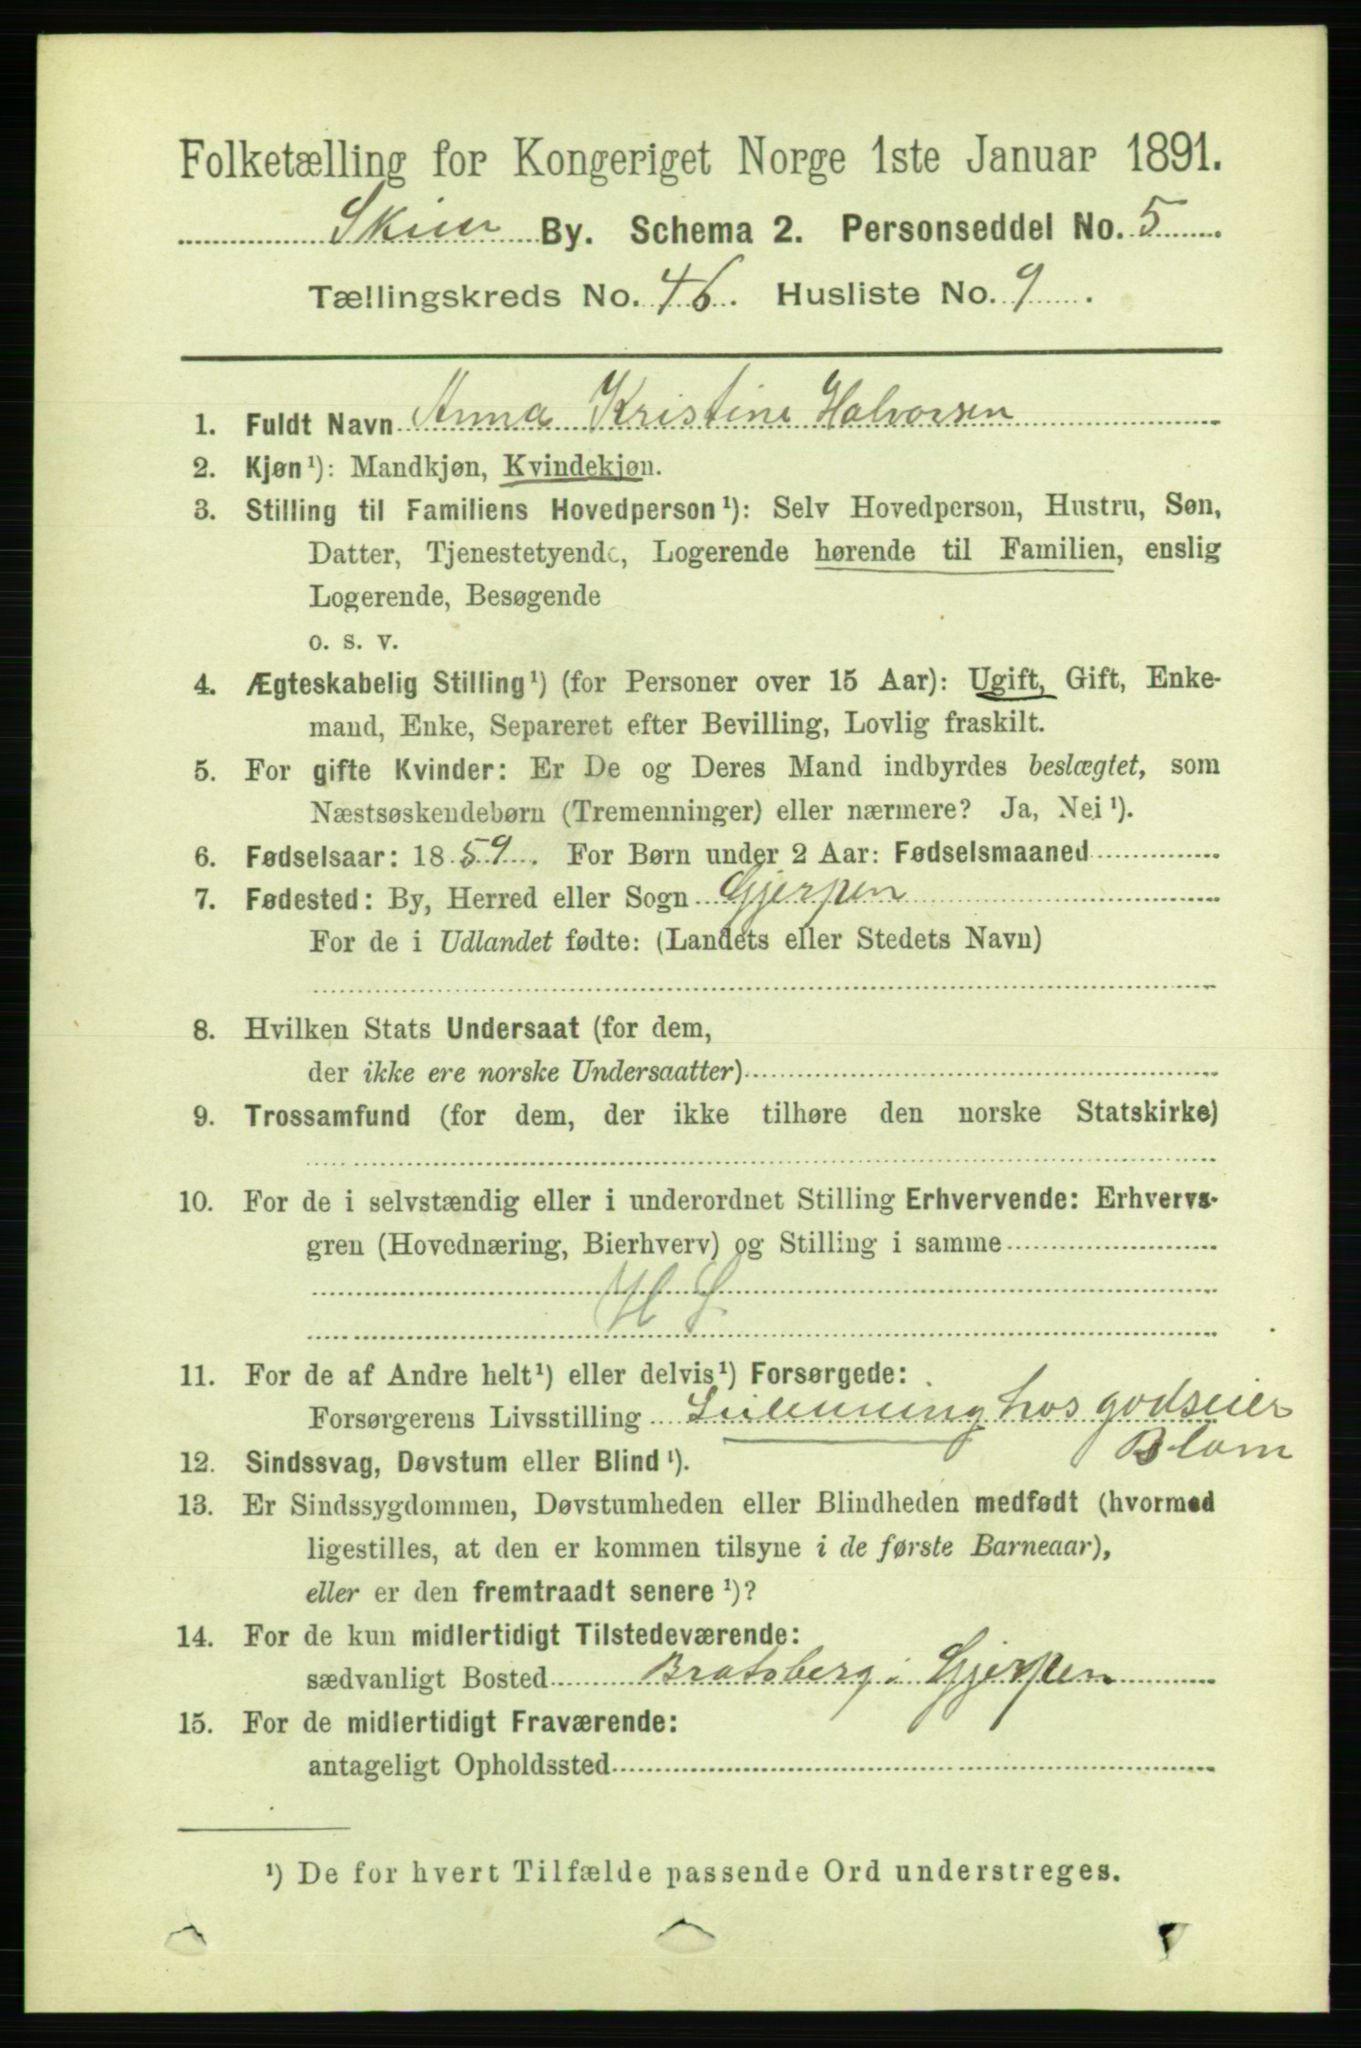 Folketælling for Kongeriget Norge 1ste Januar 1891.
Skien By. Schema 2. Personseddel No. 5
Tællingskreds No. 46. Husliste No. 9.
1. Fuldt Navn Anna Kristine Halvorsen
2. Kjøn¹): Mandkjøn, Kvindekjøn.
3. Stilling til Familiens Hovedperson¹): Selv Hovedperson, Hustru, Søn,
Datter, Tjenestetyende, Logerende hørende til Familien, enslig
Logerende, Besøgende
o. s. v.
4. Ægteskabelig Stilling¹) (for Personer over 15 Aar): Ugift, Gift, Enke-
mand, Enke, Separeret efter Bevilling, Lovlig fraskilt.
5. For gifte Kvinder: Er De og Deres Mand indbyrdes beslægtet, som
Næstsøskendebørn (Tremenninger) eller nærmere? Ja, Nei¹).
6. Fødselsaar: 1859. For Børn under 2 Aar: Fødselsmaaned
7. Fødested: By, Herred eller Sogn Gjerpen
For de i Udlandet fødte: (Landets eller Stedets Navn)
8. Hvilken Stats Undersaat (for dem,
der ikke ere norske Undersaatter)
9. Trossamfund (for dem, der ikke tilhøre den norske Statskirke)
10. For de i selvstændig eller i underordnet Stilling Erhvervende: Erhvervs-
gren (Hovednæring, Bierhverv) og Stilling i samme
11. For de af Andre helt¹) eller delvis¹) Forsørgede:
Forsørgerens Livsstilling hos godseier
Blom
12. Sindssvag, Døvstum eller Blind¹).
13. Er Sindssygdommen, Døvstumheden eller Blindheden medfødt (hvormed
ligestilles, at den er kommen tilsyne i de første Barneaar),
eller er den fremtraadt senere¹)?
14. For de kun midlertidigt Tilstedeværende:
sædvanligt Bosted Bratsberg i Gjerpen
15. For de midlertidigt Fraværende:
antageligt Opholdssted
¹) De for hvert Tilfælde passende Ord understreges.